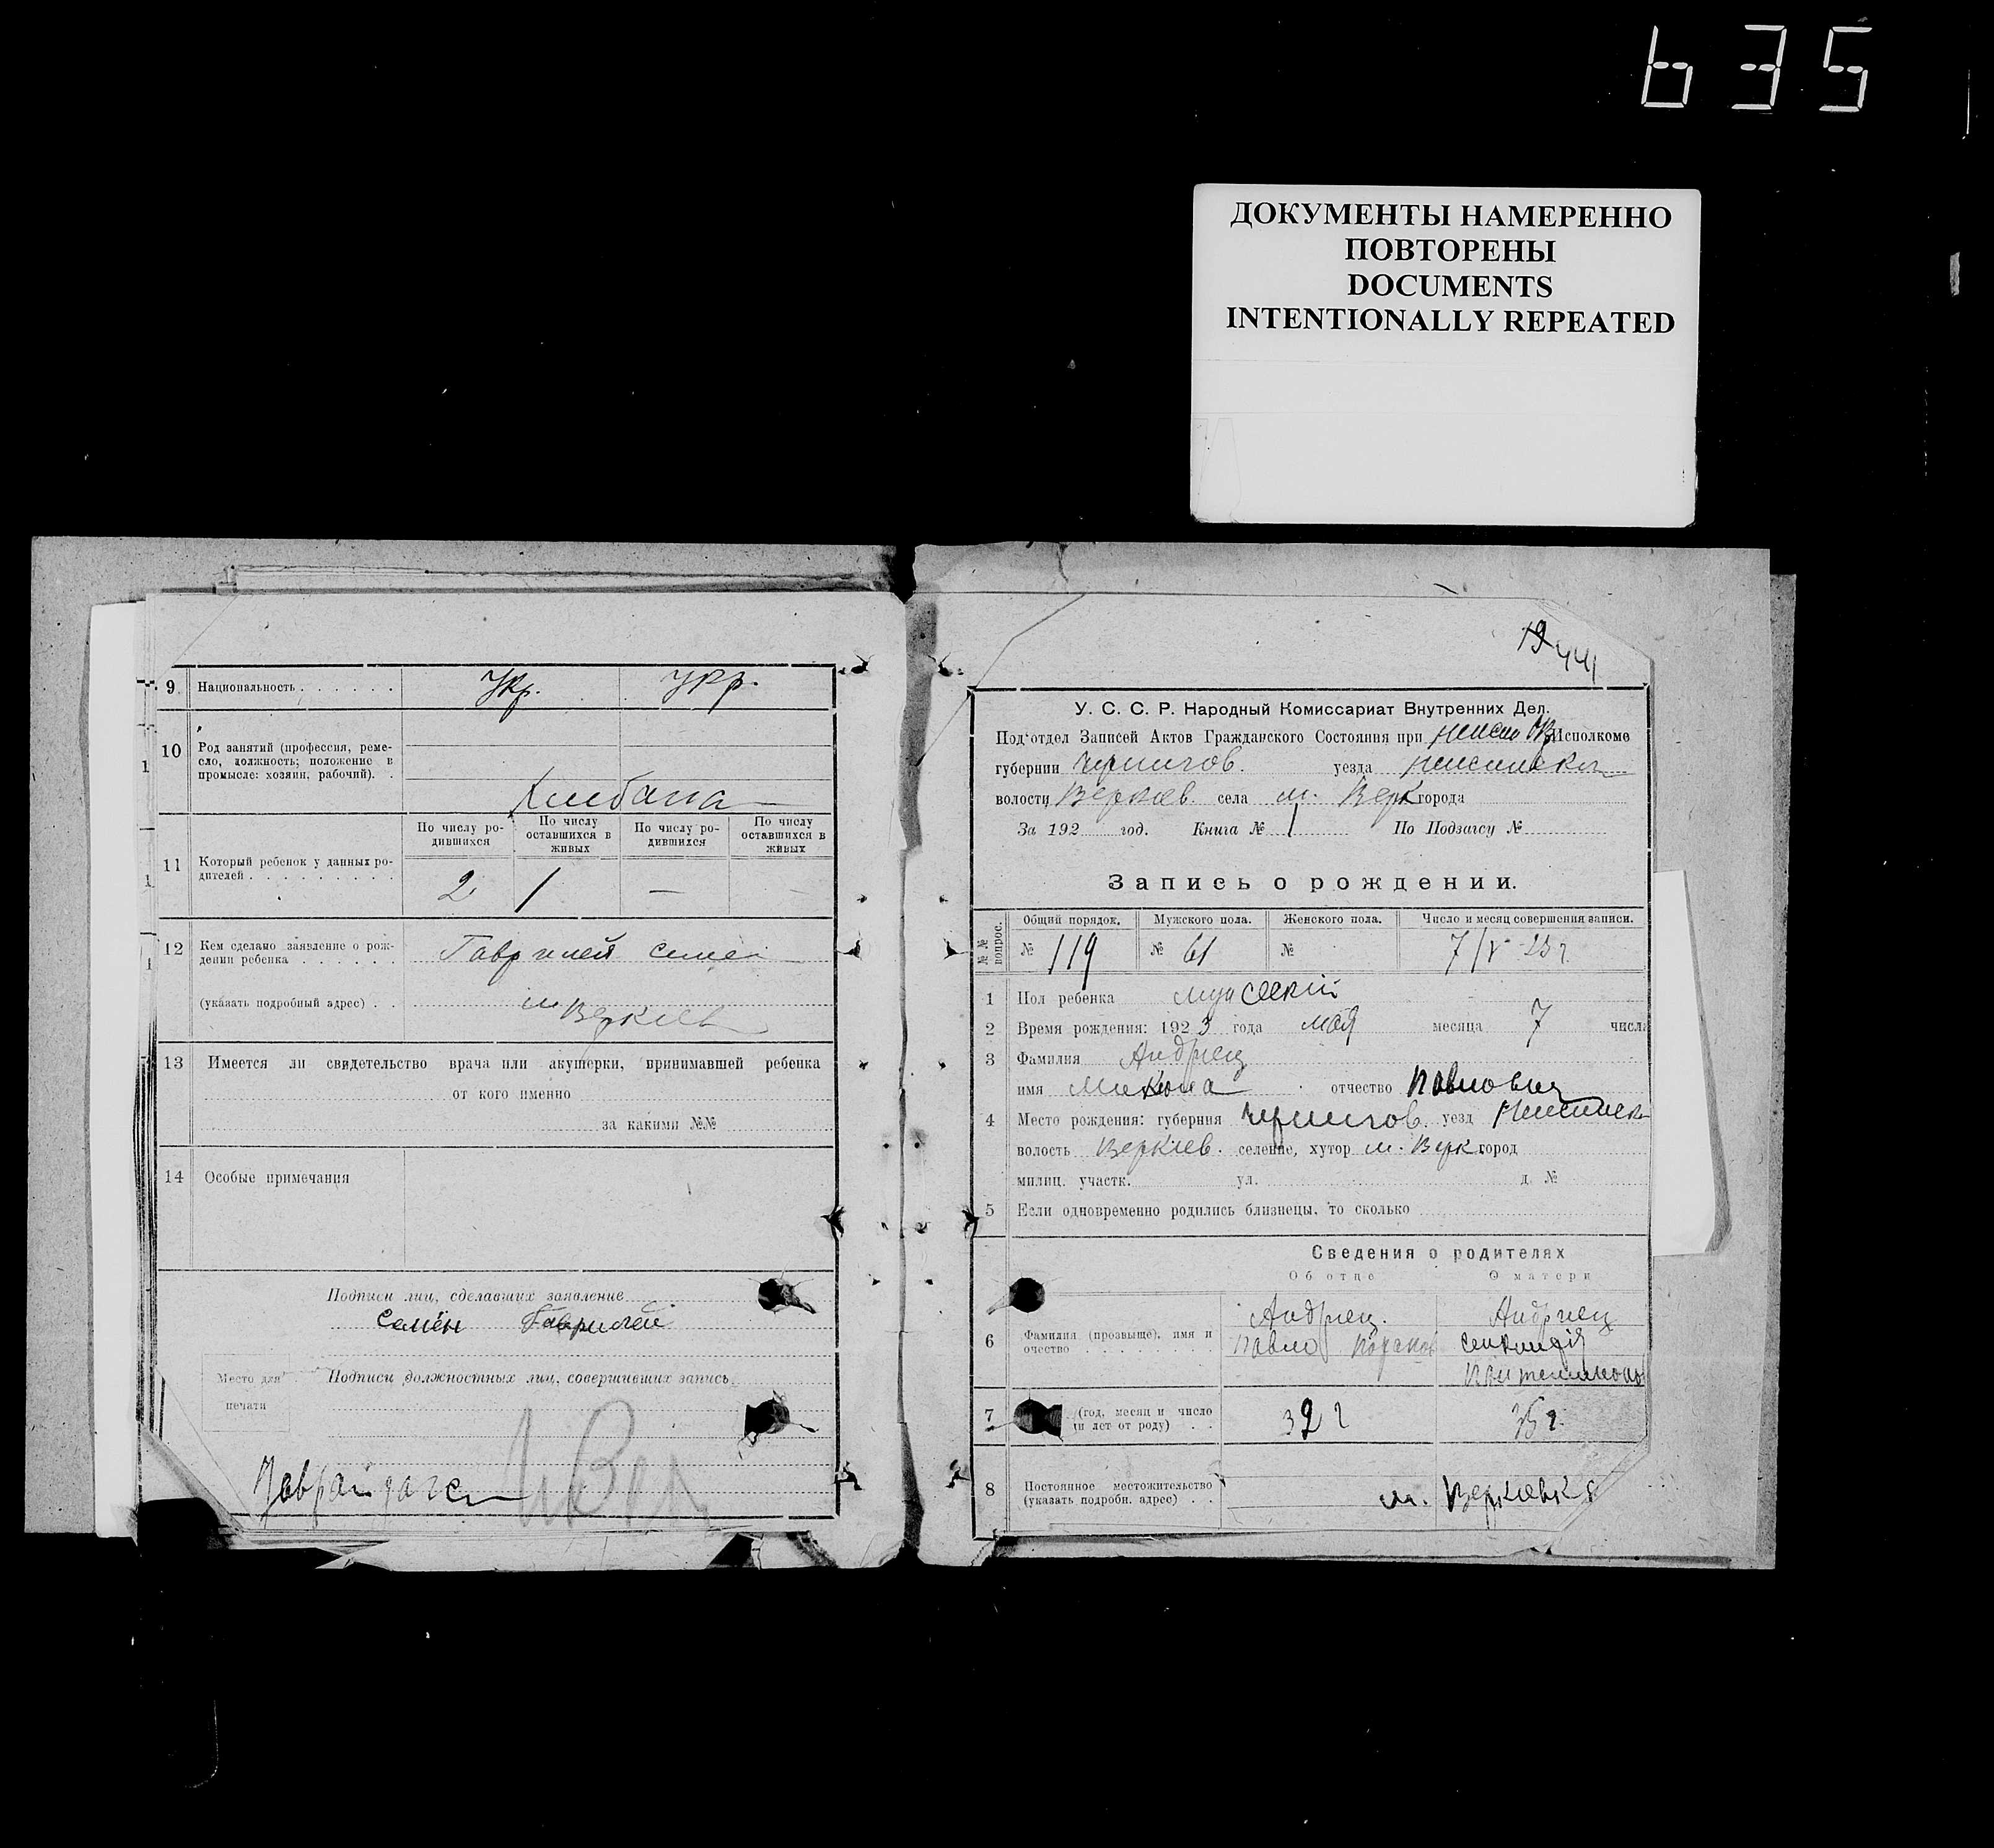 635
ДОКУМЕНТЫ НАМЕРЕННО
ПОВТОРЕНЫ
DOCUMENTS
INTENTIONALLY REPEATED
9 Национальность . . . . . . Укр. Укр.
10 Род занятий (профессия, реме-
сло, должность; положение в
промысле: хозяин, рабочий). .
11 Который ребенок у данных ро-
дителей . . . . . . . . .
По числу ро-
дившихся
По числу
оставшихся в
живых
По числу ро-
дившихся
По числу
оставшихся в
живых
2 1 — —
12 Кем сделано заявление о рож-
дении ребенка . . . . . .
(указать подробный адрес) . .
м Веркиев
13 Имеется ли свидетельство врача или акушерки, принимавшей ребенка
от кого именно
за какими №№
14 Особые примечания
Подписи лиц, сделавших заявление
Семён
Место для
печати
Подписи должностных лиц, совершивших запись
19 441
У. С. С. Р. Народный Комиссариат Внутренних Дел.
Под'отдел Записей Актов Гражданского Состояния при Исполкоме
губернии Чернигов. уезда
волости Веркиев. села м. Верк города
За 192 год. Книга № 1 По Подзагсу №
Запись о рождении.
№ № вопрос.
Общий порядок. Мужского пола. Женского пола. Число и месяц совершения записи.
№ 119 № 61 № 7/V 23 г.
1 Пол ребенка мужеский
2 Время рождения: 1923 года мая месяца 7 числа
3 Фамилия Андриец
имя Микола отчество Павлович
4 Место рождения: губерния Чернигов. уезд
волость Веркиев. селение, хутор м. Верк город
милиц. участк. ул. д. №
5 Если одновременно родились близнецы, то сколько
Сведения о родителях
Об отце О матери
6 Фамилия (прозвыще), имя и
очество . . . . . . . .
Андриец.
Павло
Андриец
7 (год, месяц и число
(и лет от роду) . .
32 г 35 г.
8 Постоянное местожительство
(указать подробн. адрес) . .
м. Веркиевка